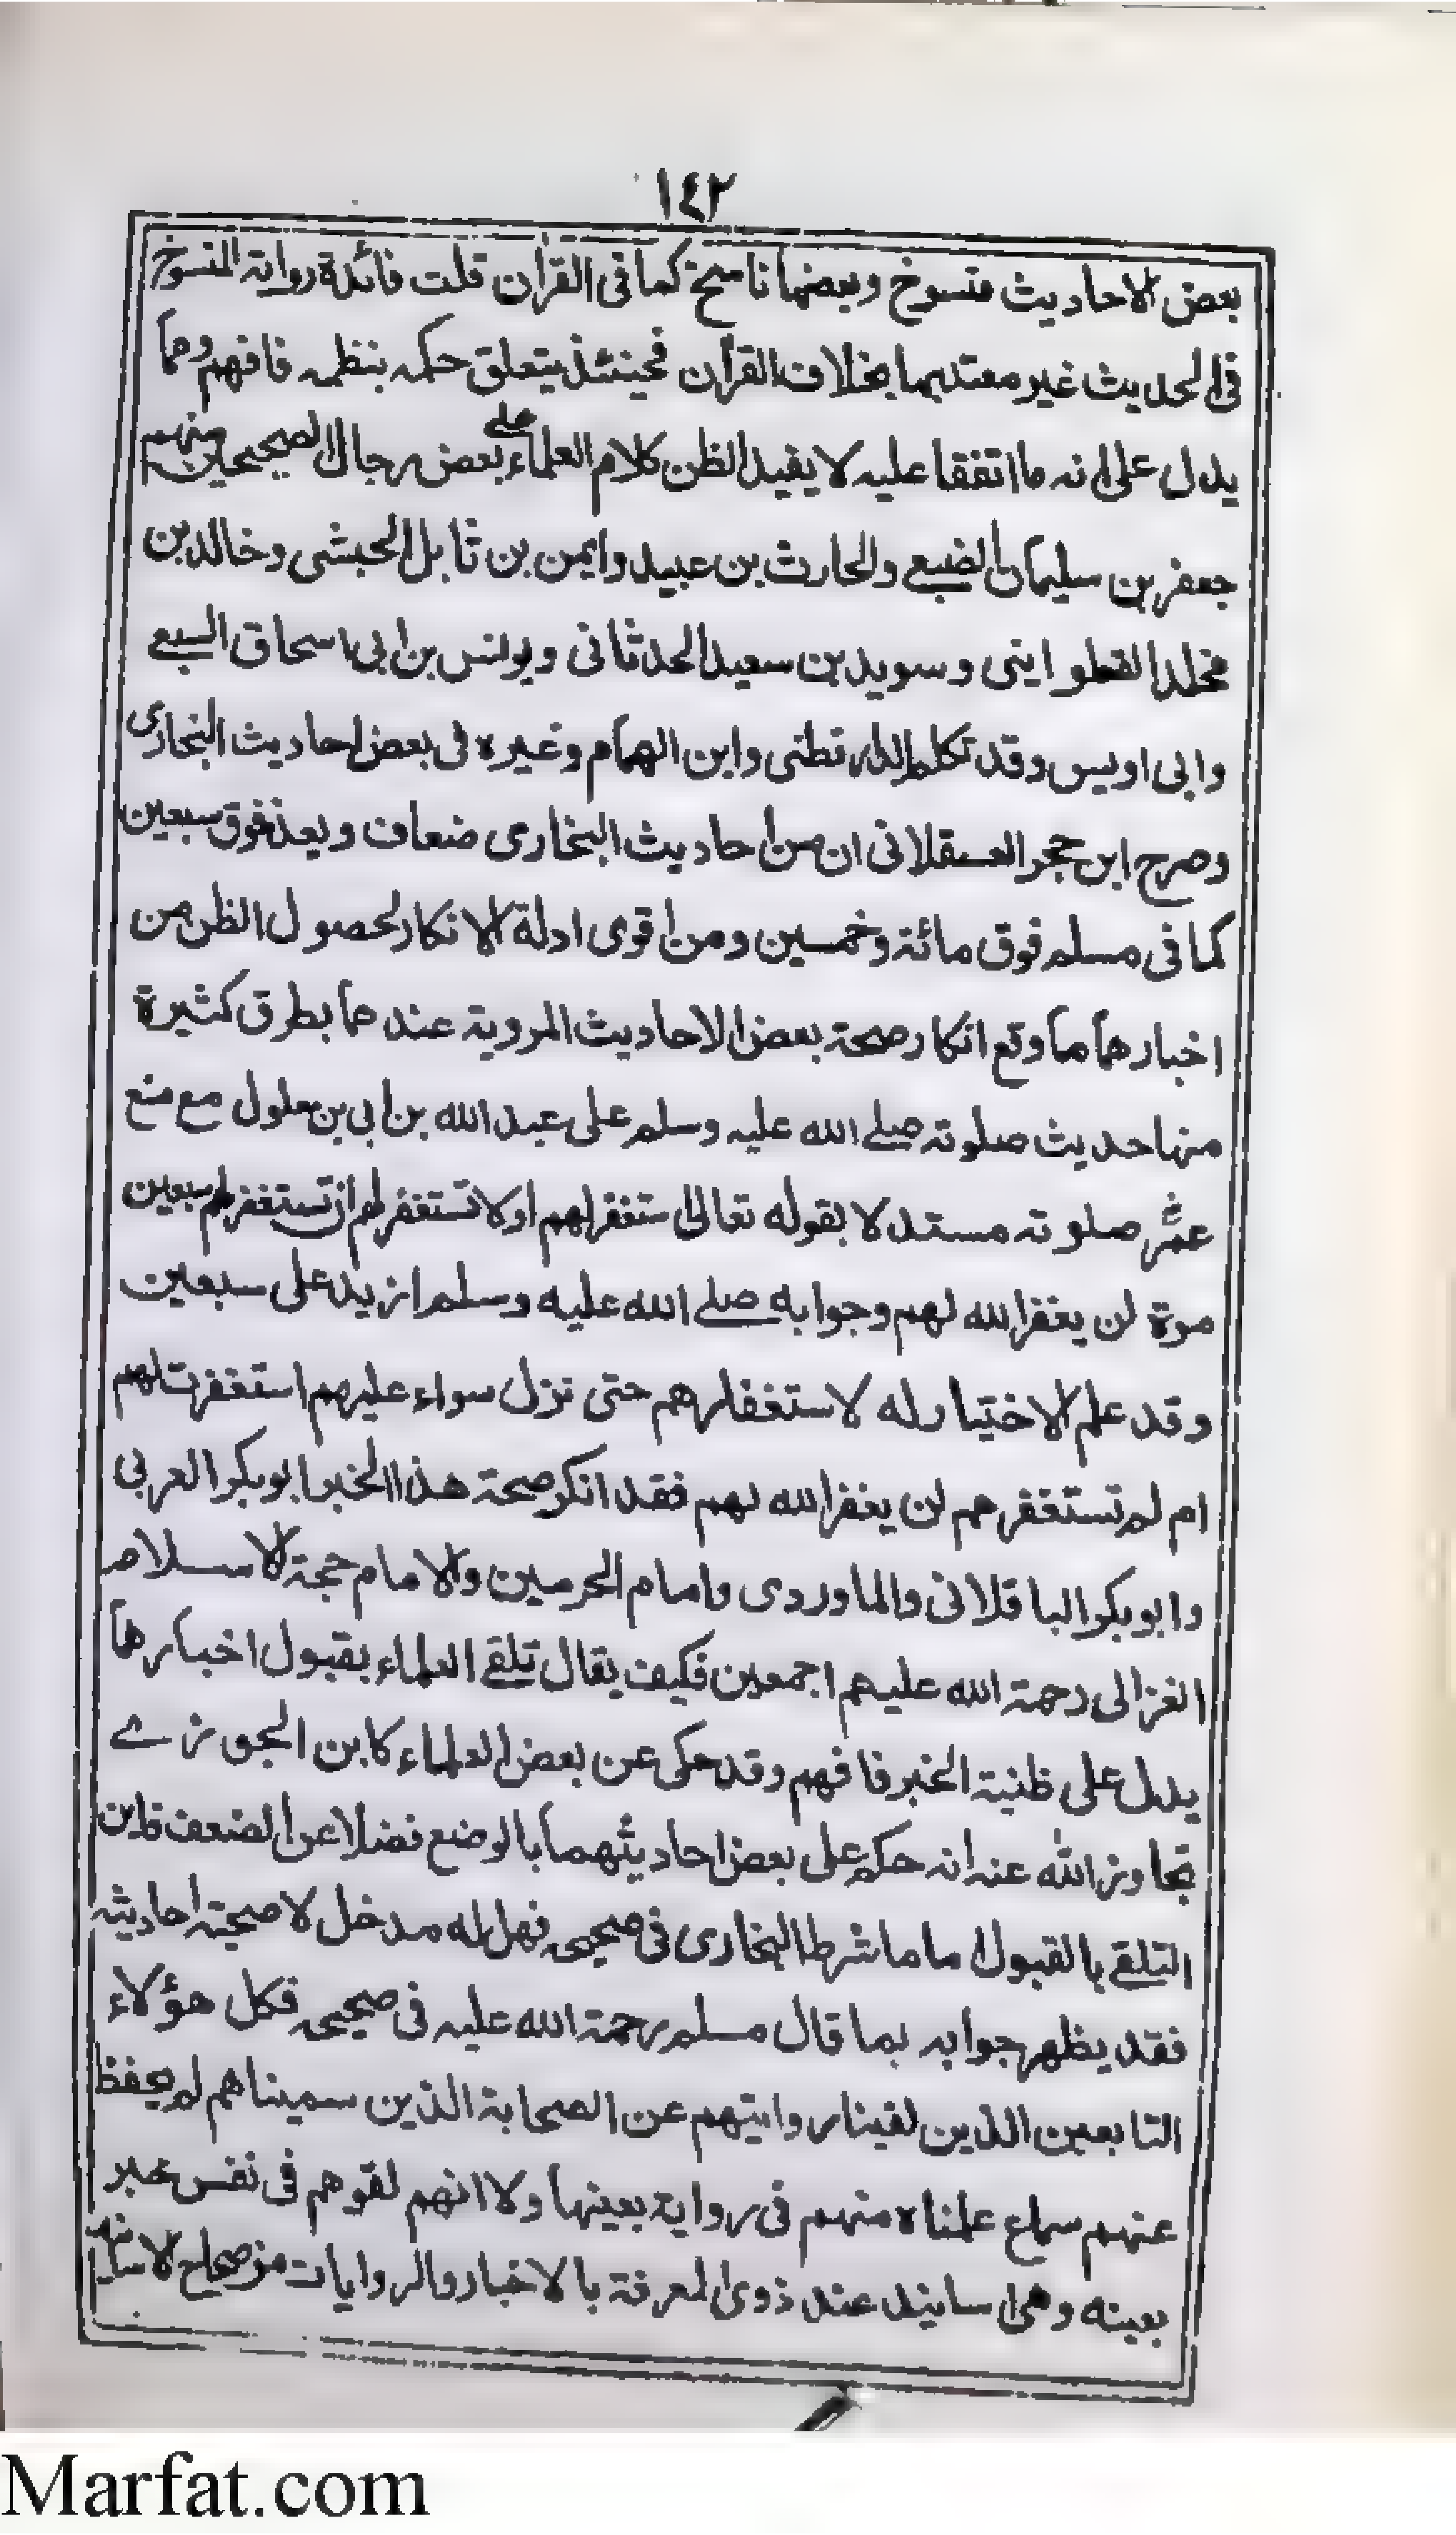 ١٤٢
بعض الاحاديث منسوخ وبعضها ناسخ كما فى القرآن قلت فائدة رواية المنسوخ
فى الحديث غير معتد بها بخلاف القرآن فحينئذ يتعلق حكمه بنظمه فافهم ومما
يدل على انه ما اتفقا عليه لا يفيد الظن كلام العلماء على بعض رجال الصحيحين منهم
جعفر بن سليمان الضبعى والحارث بن عبيد وايمن بن نابل الحبشى وخالد بن
مخلد القطوانى وسويد بن سعيد الحدثانى ويونس بن ابى اسحاق السبيعى
وابى اويس وقد تكلم الدارقطنى وابن الهمام وغيره فى بعض احاديث البخارى
وصرح ابن حجر العسقلانى ان من احاديث البخارى ضعاف ويعد فوق سبعين
كما فى مسلم فوق مائة وخمسين ومن اقوى ادلة الانكار لحصول الظن من
اخبارهما مما وقع انكار صحة بعض الاحاديث المروية عندهما بطرق كثيرة
منها حديث صلوته صلے الله عليه وسلم على عبد الله بن ابى بن سلول مع منع
عمر صلوته مستدلا بقوله تعالى استغفر لهم او لا تستغفر لهم ان تستغفر لهم سبعين
مرة لن يغفر الله لهم وجوابه صلے الله عليه وسلم ازيد على سبعين
وقد علم الاختيار له لاستغفارهم حتى نزل سواء عليهم استغفرت لهم
ام لم تستغفر هم لن يغفر الله لهم فقد انكر صحة هذا الخبر ابو بكر العربى
وابو بكر الباقلانى والماوردى وامام الحرمين والامام حجة الاسلام
الغزالى رحمة الله عليهم اجمعين فكيف يقال تلقى العلماء بقبول اخبارهما
يدل على ظنية الخبر فافهم وقد حكى عن بعض العلماء كابن الجوزے
تجاوز الله عنه انه حكم على بعض احاديثهما بالوضع فضلا عن الضعف فاين
التلقے بالقبول اما ما شرط البخارى فى صحيحه فهل له مدخل لاصحية احاديثه
فقد يظهر جوابه بما قال مسلم رحمة الله عليه فى صحيحه فكل هؤلاء
التابعين الذين لقينا روايتهم عن الصحابة الذين سميناهم لم يحفظ
عنهم سماع علمناه منهم فى رواية بعينها ولا انهم لقوهم فى نفس خبر
بعينه وهى اسانيد عند ذوى المعرفة بالاخبار والروايات من صحاح الاسانيد
Marfat.com